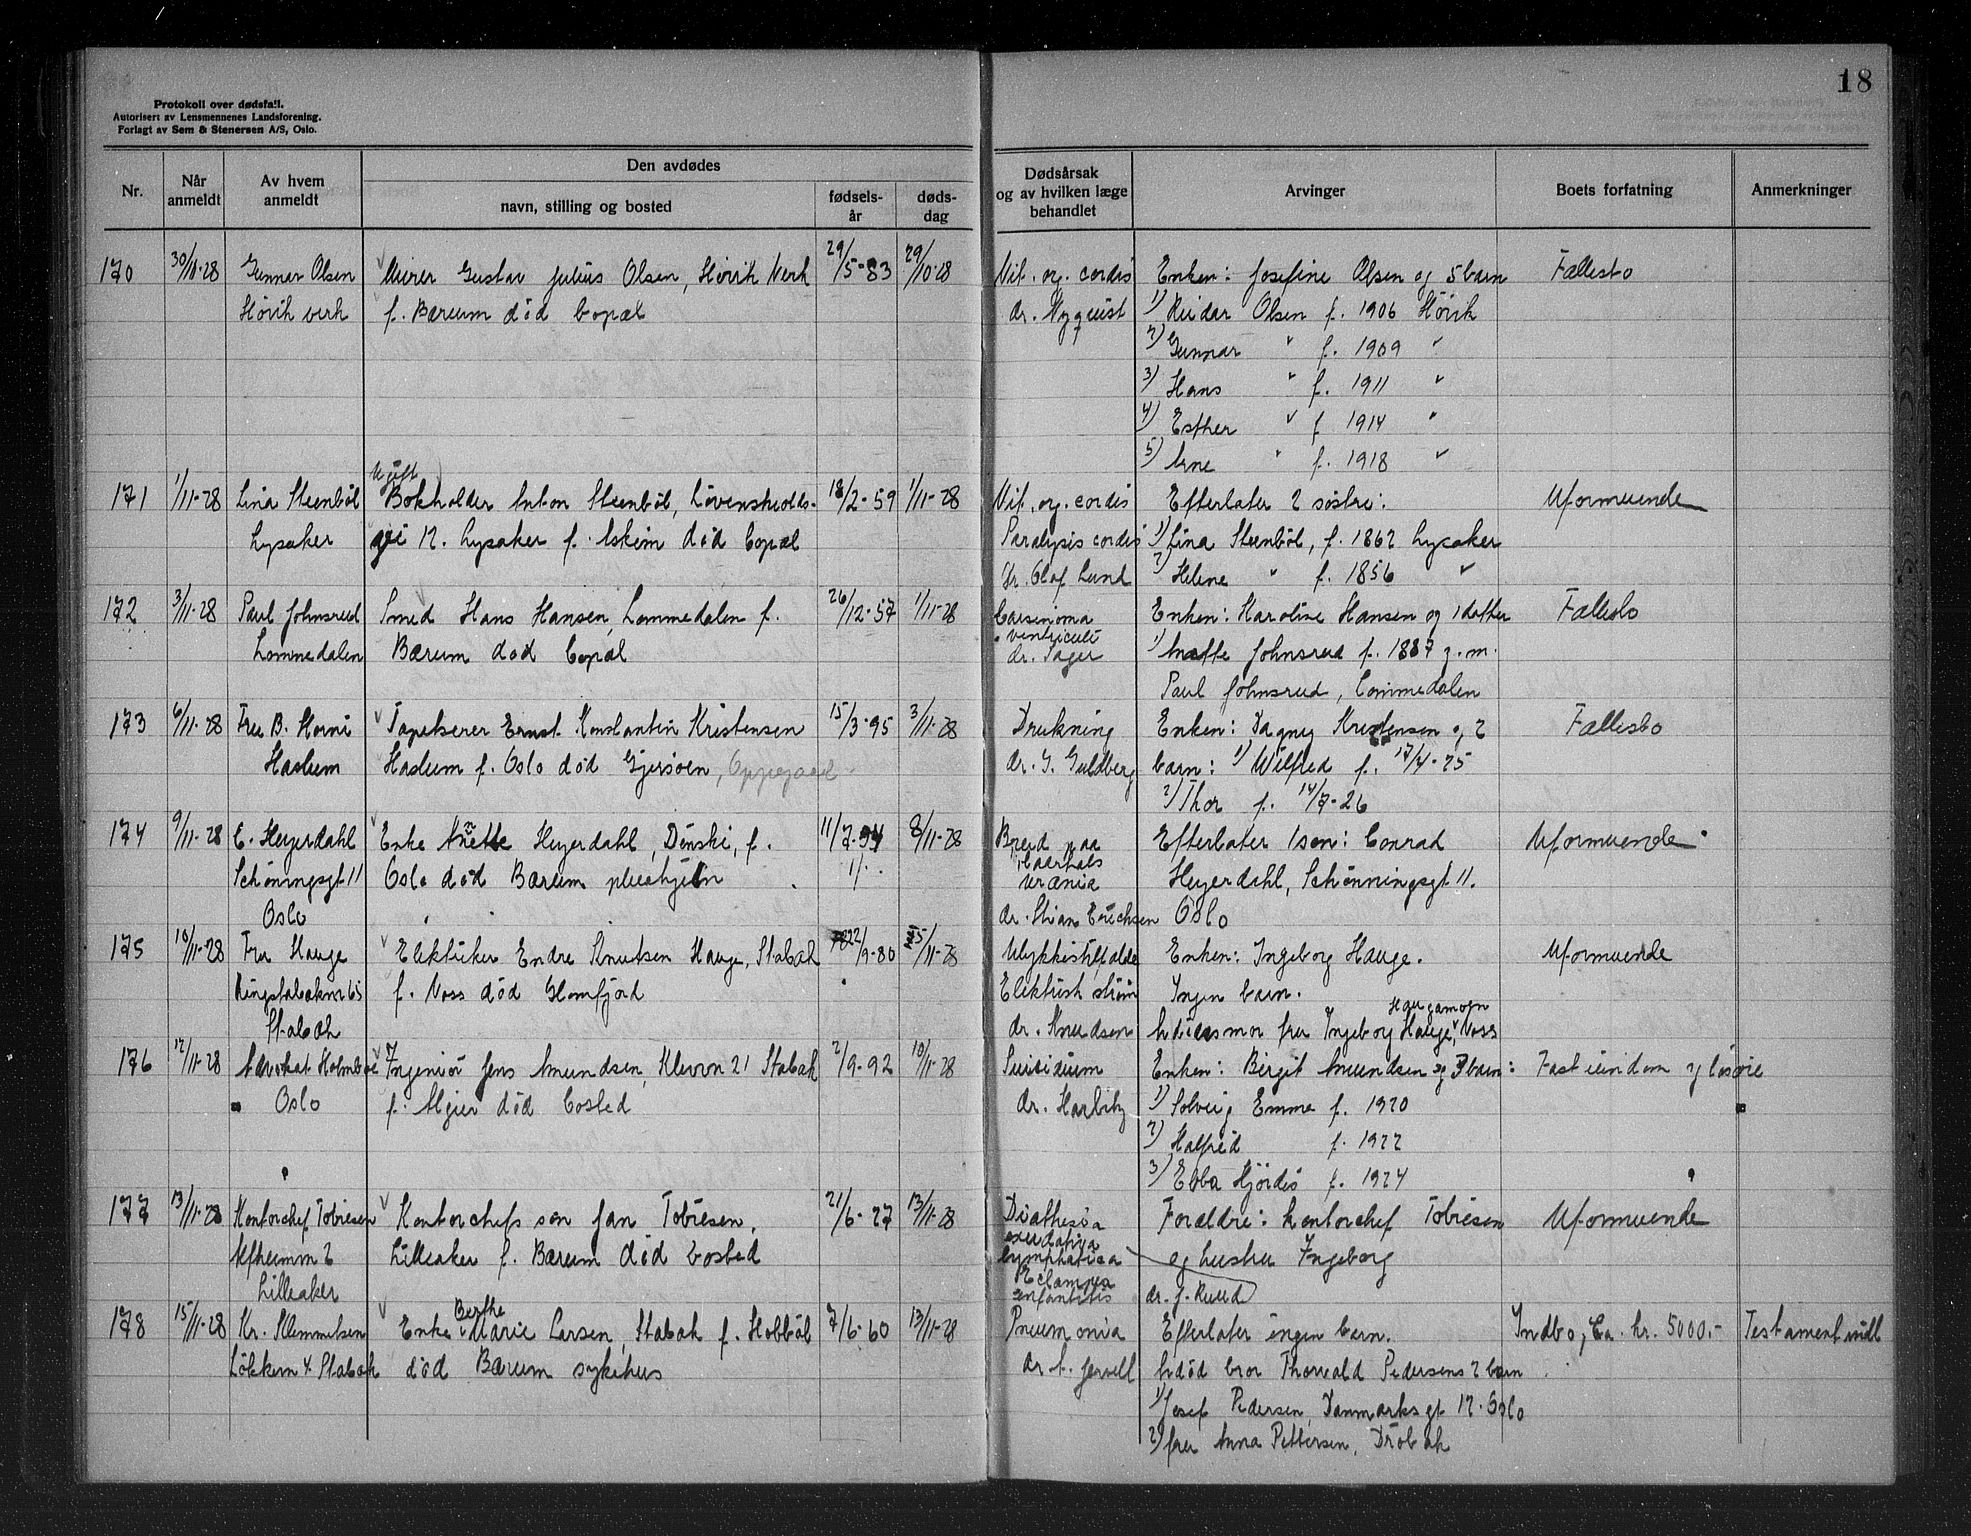 18
Protokoll over dødsfall.
Autorisert av Lensmennenes Landsforening.
Forlagt av Sem & Stenersen A/S, Oslo.
Nr.
Når anmeldt
Av hvem anmeldt
Den avdødes
navn, stilling og bosted
fødsels-år
døds-dag
Dødsårsak og av hvilken læge behandlet
Arvinger
Boets forfatning
Anmerkninger
170 30/10-28 Gunnar Olsen Murer Gustav Julius Olsen, Hövik Verk 29/5-83 29/10-28 Vit. org. cordis Enken: Josefine Olsen og 5 barn Fællesbo
Hövik verk f. Bærum död bopæl dr. Nyquist 1) Reidar Olsen f. 1906 Hövik
2) Gunnar " f. 1909 "
3) Hans " f. 1911 "
4) Esther " f 1914 "
5) Arne " f. 1918 "
Ugift
171 1/11-28 Lina Steenböl Bokholder Anton Steenböl, Lövenskiolds- 18/2-59 1/11-28 Vit. org. cordis Efterlater 2 søstre: Uformuende
Lysaker vei 12. Lysaker f. Askim död bopæl Paralysis cordis 1) Lina Steenböl, f. 1862 Lysaker
Dr. Olaf Lund 2) Helene " f. 1856 "
172 3/11-28 Paul Johnsrud Smed Hans Hansen, Lommedalen f. 26/12-57 1/11-28 Carsinoma Enken: Karoline Hansen og 1 datter Fællesbo
ventriculi
Lommedalen Bærum död bopæl dr. Sager 1) Anette Johnsrud f. 1887 g.m.
Paul Johnsrud, Lommedalen
173 6/11-28 Fru B. Horni Tapetserer Ernst Konstantin Kristensen 15/3-95 3/11-28 Drukning Enken: Dagny Kristensen og 2 Fællesbo
Haslum Haslum f. Oslo död Gjersöen, Oppegaard dr. G. Guldberg barn: 1) Wilfred f. 17/4-25
2) Thor f. 14/7-26
174 9/11-28 C. Heyerdahl Enke Anette Heyerdahl, Dönski, f. 11/7- 8/11-28 Brud paa Efterlater 1 sön: Conrad Uformuende
Schöningsgt 11 Oslo död Bærum pleiehjem laarhals Heyerdahl, Schönningsgt 11.
Urænia
Oslo dr. Stian Erichsen Oslo
175 10/11-28 Fru Hauge Elektriker Endre Knutsen Hauge, Stabæk 22/9-80 5/11-28 Ulykkestilfælde Enken: Ingeborg Hauge. Uformuende
Ringstabækvn 65 f. Voss död Glomfjord Elektrisk ström Ingen barn.
Haugamoen
Stabæk dr. Knudsen Avdödes mor fru Ingeborg Hauge, Voss
176 12/11-28 Advokat Holmboe Ingeniör Jens Amundsen, Klevvn 21 Stabæk 2/9-92 10/11-28 Suisidium Enken: Birgit Amundsen og 3 barn: Fast eiendom og lösöre
Oslo f. Algier död bosted dr. Harbitz 1) Solveig Emma f. 1920
2) Halfrid f. 1922
3) Ebba Hjördis f. 1924
177 13/11-28 Kontorchef Tobiesen Kontorchefs sön Jan Tobiesen, 21/6-27 13/11-28 Diathesia Forældre: kontorchef Tobiesen Uformuende
exudativa
Alfheimvn 2 Lilleaker f. Bærum död bosted lymphatica og hustru Ingeborg
Eclampsia
Lilleaker infantilis dr. J. Ruud
Berthe
178 15/11-28 Kr. Klemmetsen Enke Marie Larsen, Stabæk f. Hobböl 7/6-60 13/11-28 Pneumonia Efterlater ingen barn. Indbo, Ca. kr. 5000.- Testament indl
Lökkevn 4 Stabæk död Bærum sykehus dr. A. Jervell Avdöd bror Thorvald Pedersens 2 barn
1) Josef Pedersen, Danmarks gt 12. Oslo
2) fru Anna Pettersen, Dröbak